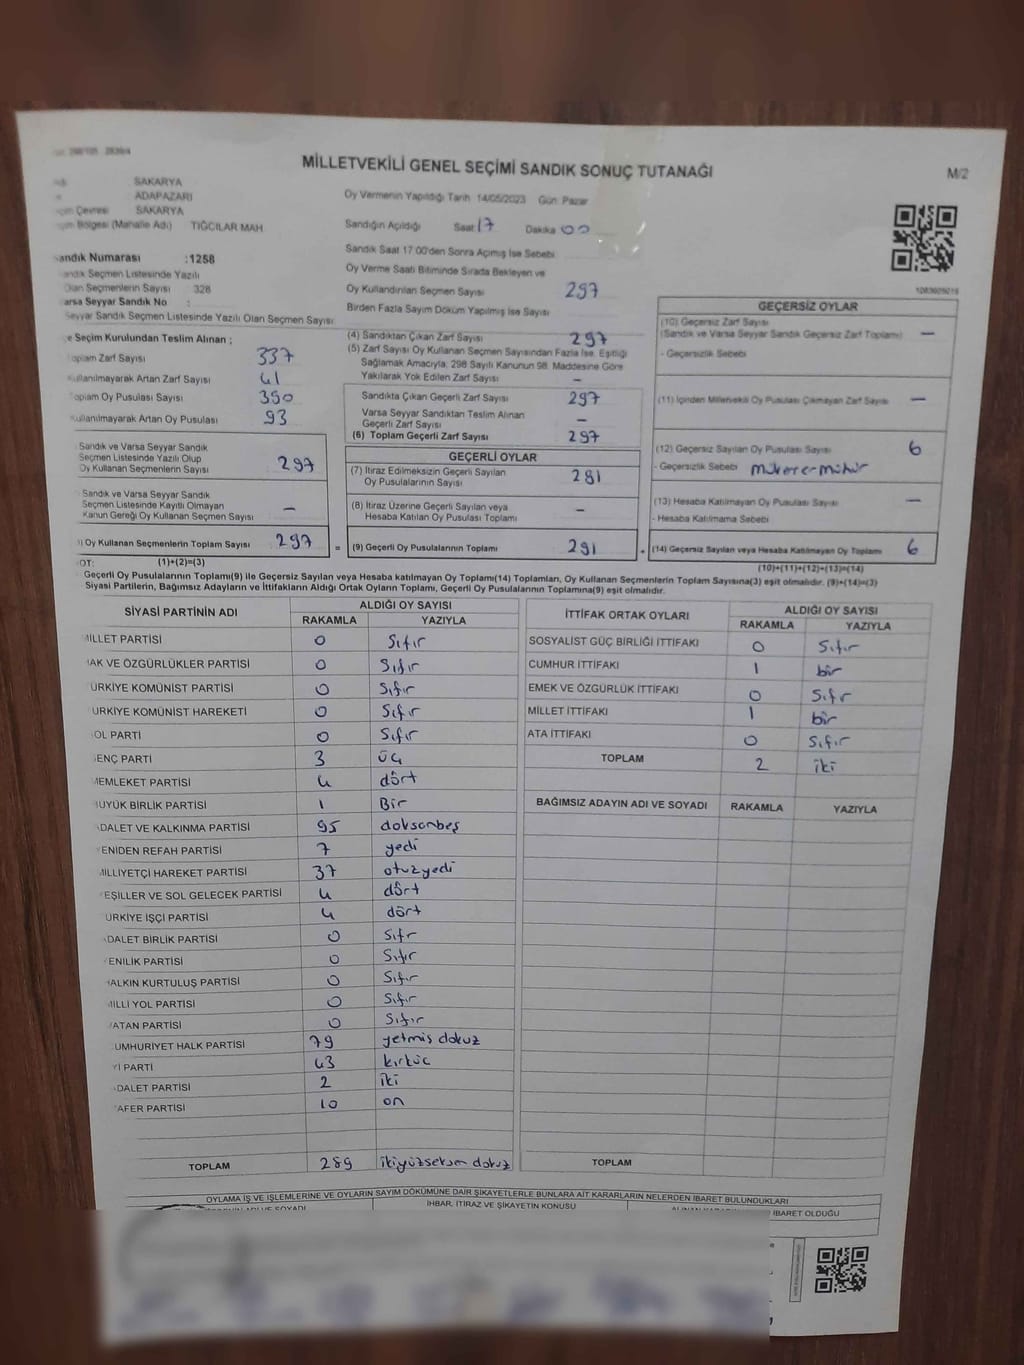 MİLLETVEKİLİ GENEL SEÇİMİ SANDIK SONUÇ TUTANAĞI
M/2
SAKARYA
ADAPAZARI
Çevresi SAKARYA
Bölgesi (Mahalle Adı) TIĞCILAR MAH
Oy Vermenin Yapıldığı Tarih 14/05/2023 Gün: Pazar
Sandığın Açıldığı Saat 17 Dakika 00
Sandık Saat 17:00'den Sonra Açılmış İse Sebebi
andık Numarası :1258
andık Seçmen Listesinde Yazılı
Olan Seçmenlerin Sayısı 328
arsa Seyyar Sandık No :
Seyyar Sandık Seçmen Listesinde Yazılı Olan Seçmen Sayısı:
Oy Verme Saati Bitiminde Sırada Bekleyen ve
Oy Kullandırılan Seçmen Sayısı 297
Birden Fazla Sayım Döküm Yapılmış İse Sayısı
e Seçim Kurulundan Teslim Alınan ;
oplam Zarf Sayısı 337
ullanılmayarak Artan Zarf Sayısı 41
oplam Oy Pusulası Sayısı 390
ullanılmayarak Artan Oy Pusulası 93
Sandık ve Varsa Seyyar Sandık
Seçmen Listesinde Yazılı Olup
Oy Kullanan Seçmenlerin Sayısı 297
Sandık ve Varsa Seyyar Sandık
Seçmen Listesinde Kayıtlı Olmayan
Kanun Gereği Oy Kullanan Seçmen Sayısı –
) Oy Kullanan Seçmenlerin Toplam Sayısı 297
(4) Sandıktan Çıkan Zarf Sayısı 297
(5) Zarf Sayısı Oy Kullanan Seçmen Sayısından Fazla İse, Eşitliği
Sağlamak Amacıyla, 298 Sayılı Kanunun 98. Maddesine Göre
Yakılarak Yok Edilen Zarf Sayısı –
Sandıkta Çıkan Geçerli Zarf Sayısı 297
Varsa Seyyar Sandıktan Teslim Alınan
Geçerli Zarf Sayısı –
(6) Toplam Geçerli Zarf Sayısı 297
GEÇERLİ OYLAR
(7) İtiraz Edilmeksizin Geçerli Sayılan
Oy Pusulalarının Sayısı 281
(8) İtiraz Üzerine Geçerli Sayılan veya
Hesaba Katılan Oy Pusulası Toplamı –
= (9) Geçerli Oy Pusulalarının Toplamı 291
GEÇERSİZ OYLAR
(10) Geçersiz Zarf Sayısı
(Sandık ve Varsa Seyyar Sandık Geçersiz Zarf Toplamı) –
- Geçersizlik Sebebi
(11) İçinden Milletvekili Oy Pusulası Çıkmayan Zarf Sayısı –
(12) Geçersiz Sayılan Oy Pusulası Sayısı 6
- Geçersizlik Sebebi mükerrer mühür
(13) Hesaba Katılmayan Oy Pusulası Sayısı –
- Hesaba Katılmama Sebebi
+ (14) Geçersiz Sayılan veya Hesaba Katılmayan Oy Toplamı 6
OT: (1)+(2)=(3) (10)+(11)+(12)+(13)=(14)
Geçerli Oy Pusulalarının Toplamı(9) ile Geçersiz Sayılan veya Hesaba katılmayan Oy Toplamı(14) Toplamları, Oy Kullanan Seçmenlerin Toplam Sayısına(3) eşit olmalıdır. (9)+(14)=(3)
Siyasi Partilerin, Bağımsız Adayların ve İttifakların Aldığı Ortak Oyların Toplamı, Geçerli Oy Pusulalarının Toplamına(9) eşit olmalıdır.
SİYASİ PARTİNİN ADI ALDIĞI OY SAYISI
RAKAMLA YAZIYLA
MİLLET PARTİSİ 0 Sıfır
HAK VE ÖZGÜRLÜKLER PARTİSİ 0 Sıfır
ÜRKİYE KOMÜNİST PARTİSİ 0 Sıfır
ÜRKİYE KOMÜNİST HAREKETİ 0 Sıfır
OL PARTİ 0 Sıfır
ENÇ PARTİ 3 üç
EMLEKET PARTİSİ 4 dört
ÜYÜK BİRLİK PARTİSİ 1 Bir
DALET VE KALKINMA PARTİSİ 95 doksanbeş
ENİDEN REFAH PARTİSİ 7 yedi
İLLİYETÇİ HAREKET PARTİSİ 37 otuzyedi
EŞİLLER VE SOL GELECEK PARTİSİ 4 dört
ÜRKİYE İŞÇİ PARTİSİ 4 dört
DALET BİRLİK PARTİSİ 0 Sıfır
ENİLİK PARTİSİ 0 Sıfır
ALKIN KURTULUŞ PARTİSİ 0 Sıfır
İLLİ YOL PARTİSİ 0 Sıfır
ATAN PARTİSİ 0 Sıfır
UMHURİYET HALK PARTİSİ 79 yetmiş dokuz
Yİ PARTİ 43 kırküç
DALET PARTİSİ 2 iki
AFER PARTİSİ 10 on
TOPLAM 289 ikiyüzseksen dokuz
İTTİFAK ORTAK OYLARI ALDIĞI OY SAYISI
RAKAMLA YAZIYLA
SOSYALİST GÜÇ BİRLİĞİ İTTİFAKI 0 Sıfır
CUMHUR İTTİFAKI 1 bir
EMEK VE ÖZGÜRLÜK İTTİFAKI 0 Sıfır
MİLLET İTTİFAKI 1 bir
ATA İTTİFAKI 0 Sıfır
TOPLAM 2 iki
BAĞIMSIZ ADAYIN ADI VE SOYADI RAKAMLA YAZIYLA
TOPLAM
OYLAMA İŞ VE İŞLEMLERİNE VE OYLARIN SAYIM DÖKÜMÜNE DAİR ŞİKAYETLERLE BUNLARA AİT KARARLARIN NELERDEN İBARET BULUNDUKLARI
İHBAR, İTİRAZ VE ŞİKAYETİN KONUSU
İBARET OLDUĞU